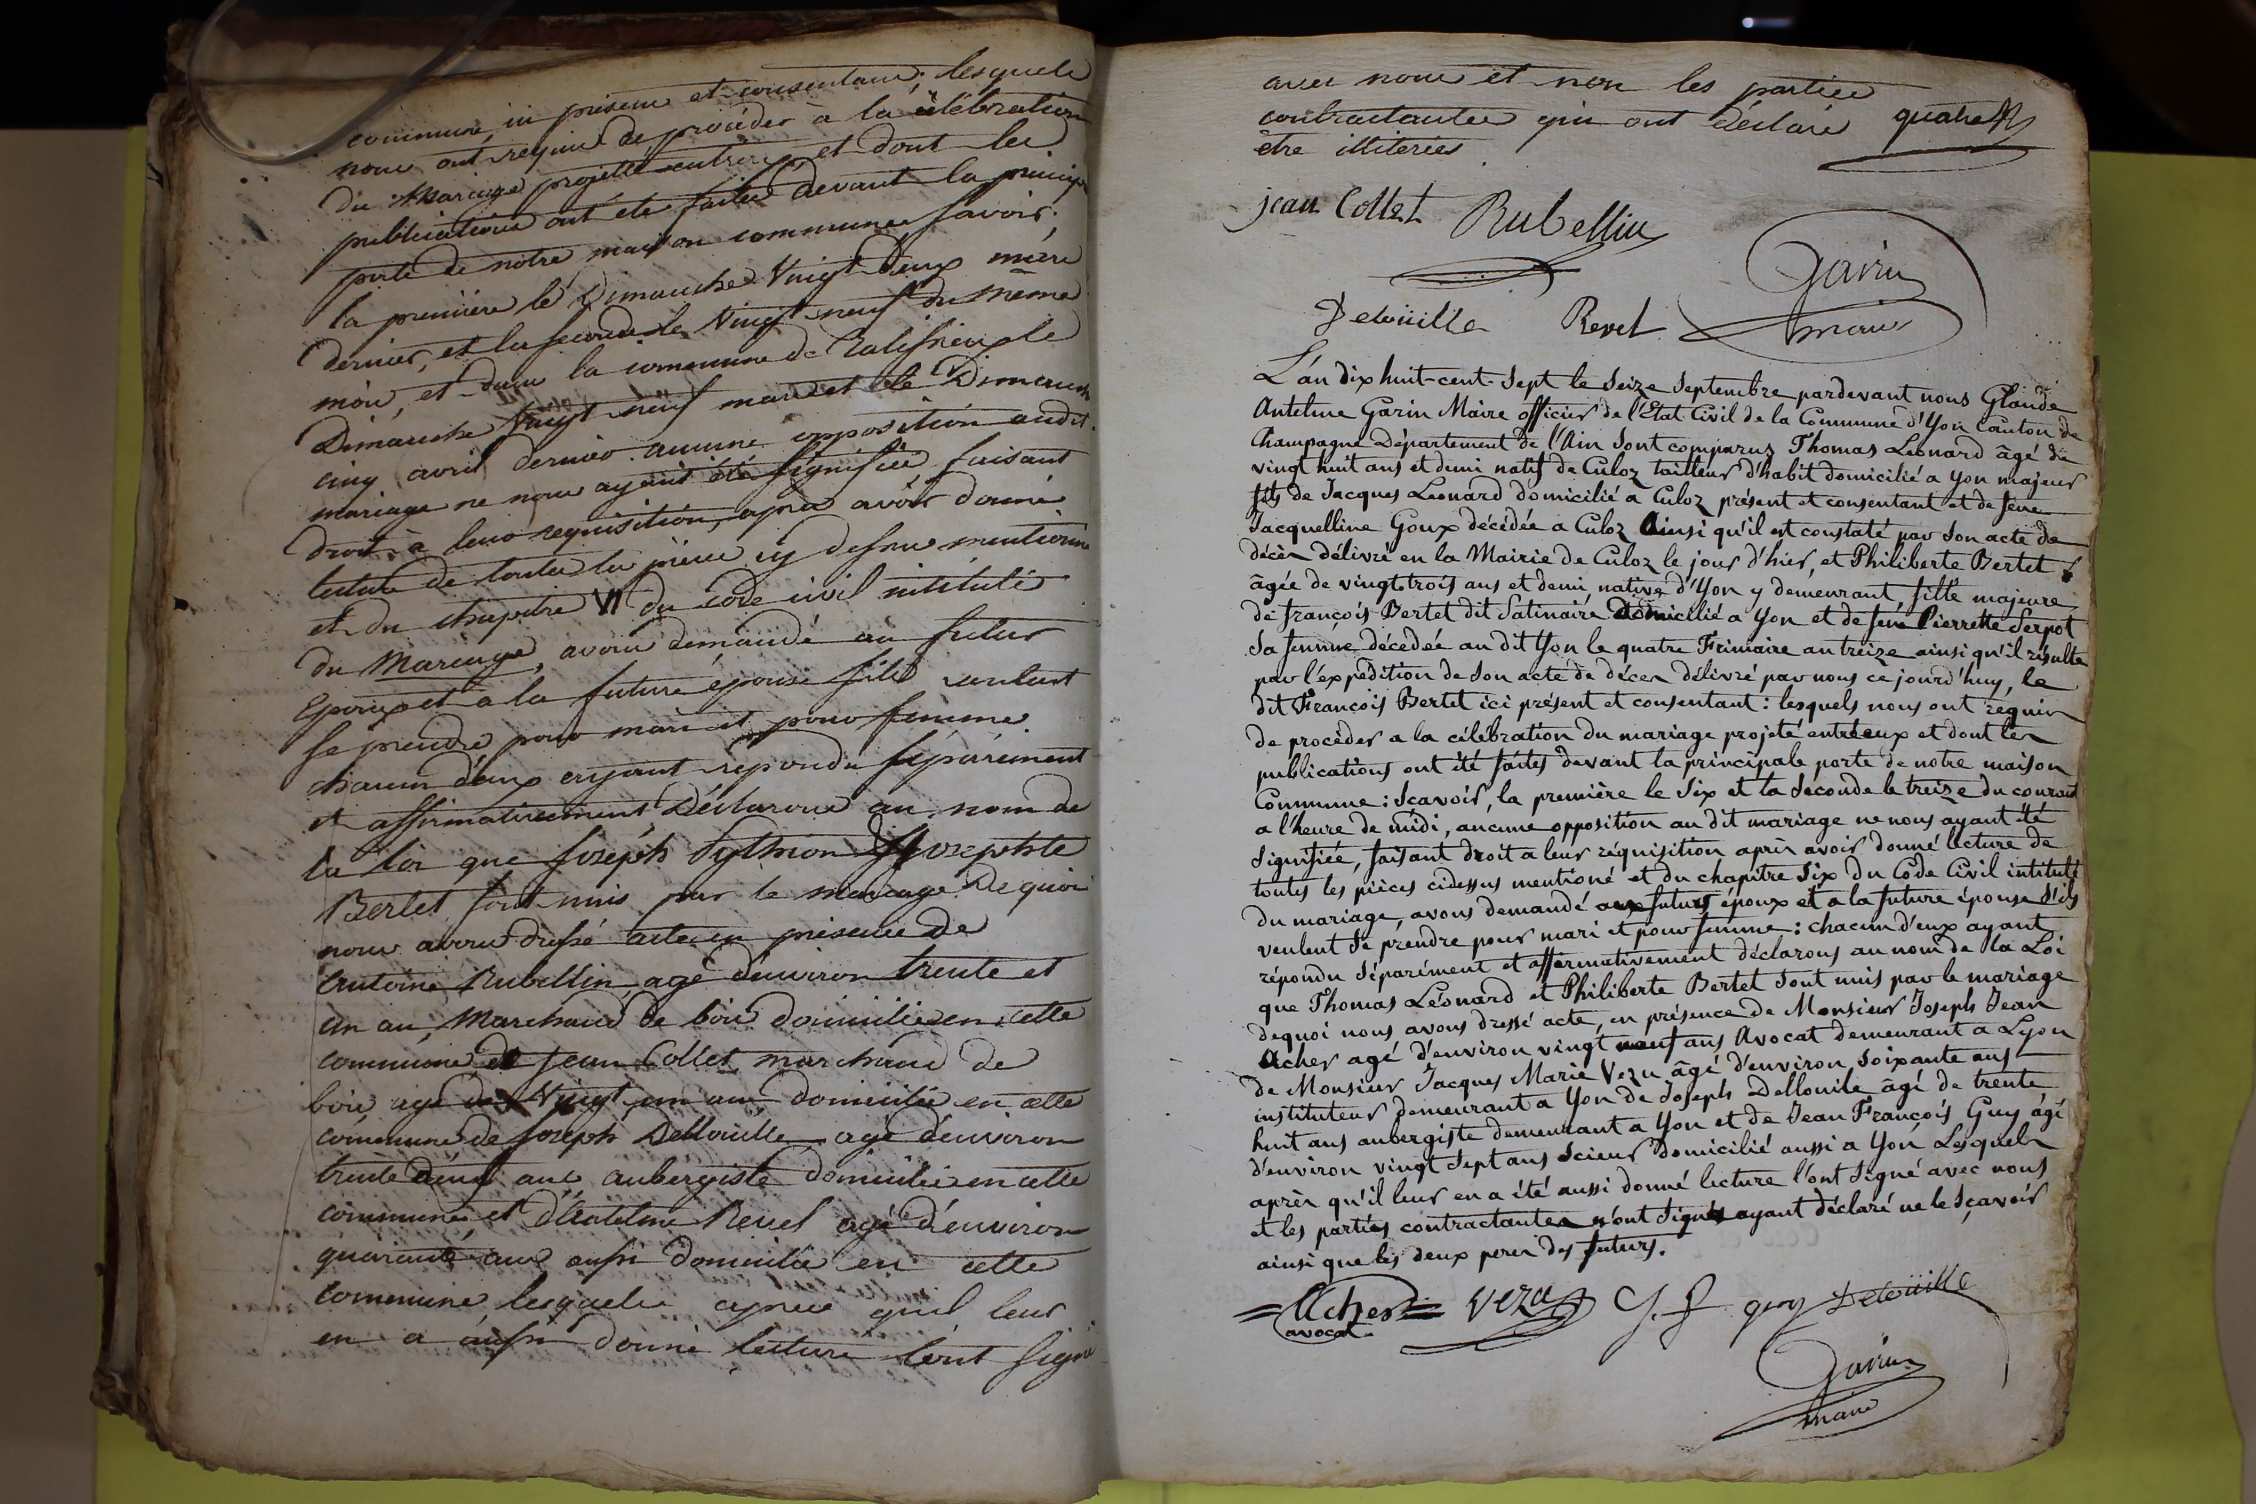 commune, ici présent et consentant; lesquels
nous ont requis de procéder à la célébration
du Mariage projetté entr'eux et dont les
publications ont été faites devant la princip
porte de notre maison commune savoir;
la première le Dimanche Vingt deux mars
dernier, et la seconde le Vingt neuf du même
mois, et dans la commune de le
Dimanche Vingt neuf mars et le Dimanche
cinq avril dernier aucune opposition audit
mariage ne nous ayant été signifiée, faisant
droit à leur requisition, après avoir donné
lecture de toutes les pièces cy dessus mentionné
et du chapitre VI du code civil intitulé
du Mariage, avons demandé au futur
Epoux et a la future épouse s'ils veulent
se prendre pour mari et pour femme
chacun d'eux ayant répondu séparément
et affirmativement, Déclarons au nom de
la Loi que Joseph Sythion & Josephte
Bertet sont unis par le mariage De quoi
nous avons dressé acte en présence de
Antoine Rubellin agé d'environ trente et
un an Marchand de bois domicilié en cette
commune de Jean Collet marchand de
bois agé de Vingt un ans domicilié en cette
commune de Joseph Dellouille agé d'environ
trente ans aubergiste domicilié en cette
commune, et d'Antelme Revel agé d'environ
quarante ans aussi domicilié en cette
commune lesquels après qu'il leur
en a aussi donné lecture l'ont signé
avec nous et non les parties
contractantes qui ont déclaré
être illiterées.
quatre
jean Collet Rubellin
Garin
maire
Delouille Revel
L'an dix huit-cent-Sept le Seize Septembre pardevant nous Glaude
Antelme Garin Maire officier de l'Etat Civil de la Commune d'Yon Canton de
Champagne Département de l'Ain Sont comparus Thomas Leonard âgé de
vingt huit ans et demi natif de Culoz tailleur d'habit domicilié a Yon majeur
fils de Jacques Leonard domicilié a Culoz présent et consentant et de feue
Jacquelline Goux décédée a Culoz Ainsi qu'il est constaté par Son acte de
décès délivré en la Mairie de Culoz le jour d'hier, et Philiberte Bertet
âgée de vingt trois ans et demi native d'Yon y demeurant, fille majeure
de françois Bertet dit Satinaire domicilié a Yon et de feue Pierrette Serpot
Sa femme décédée au dit Yon le quatre Frimaire an treize ainsi qu'il résulte
par l'éxpédition de Son acte de décès délivré par nous ce jourd'huy, le
dit François Bertet ici présent et consentant: lesquels nous ont requis
de procéder a la célébration du mariage projeté entréeux et dont les
publications ont été faites devant la principale porte de notre maison
Commune: Sçavoir, la première le Six et la Seconde le treize du courant
a l'heure de midi, aucune opposition au dit mariage ne nous ayant été
Signifiée, faisant droit a leur réquisition après avoir donné lecture de
toutes les pièces cidessus mentioné et du chapitre Six du Code Civil intitulé
du mariage, avons demandé aux futurs époux et a la future épouse S'ils
veulent Se prendre pour mari et pour femme: chacun d'eux ayant
répondu Séparément et affirmativement déclarons au nom de la Loi
que Thomas Léonard et Philiberte Bertet Sont unis par le mariage
dequoi nous avons dressé acte, en présence de Monsieur Joseph Jean
Acher agé d'environ vingt neuf ans Avocat demeurant a Lyon
de Monsieur Jacques Marie Vezu âgé d'environ Soixante ans
instituteur demeurant a Yon de Joseph Dellouile âgé de trente
huit ans aubergiste demeurant a Yon et de Jean François Guy agé
d'environ vingt Sept ans Scieur Domicilié aussi a Yon Lesquels
après qu'il leur en a été aussi donné lecture l'ont Signé avec nous
et les parties contractantes n'ont Signés ayant déclaré ne le Sçavoir
ainsi que les deux peres des futurs.
Acher
avocat
Vezu J. F. guy Delouille
Garin
maire